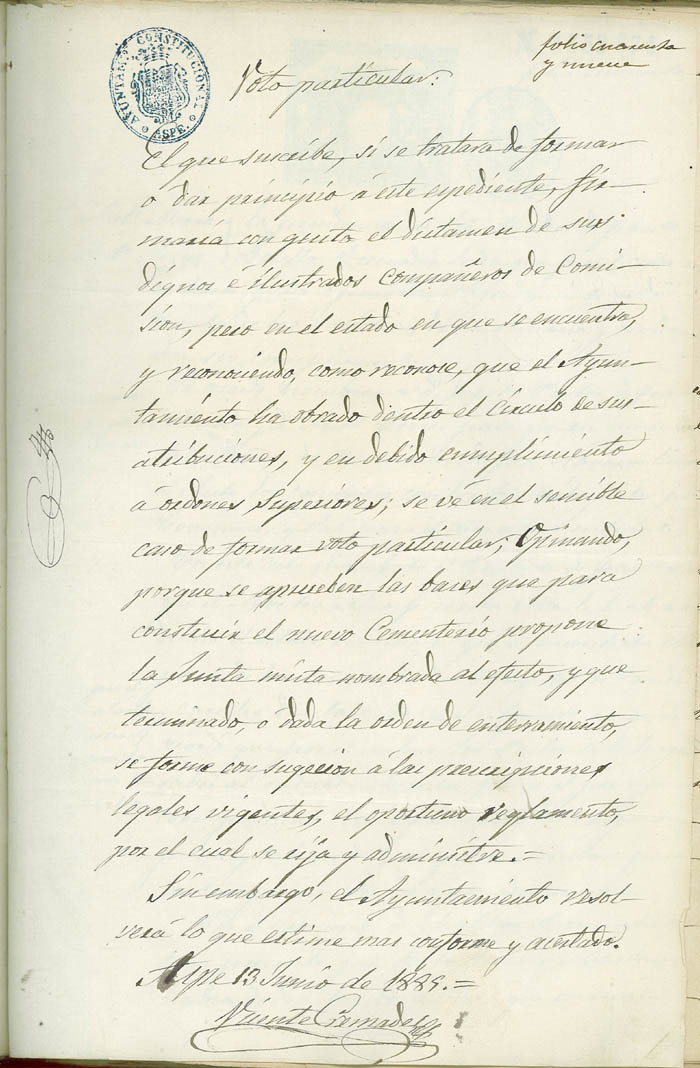 AYUNTAMTO CONSTITUCIONAL
ASPE.
folio cuarenta
y nueve
Voto particular:
El que suscribe, si se tratara de formar
o dar principio á este espediente, fir-
maria con gusto el dictamen de sus
dignos é ilustrados compañeros de Comi-
sion, pero en el estado en que se encuentra,
y reconociendo, como reconoce, que el Ayun-
tamiento ha obrado dentro el circulo de sus
atribuciones, y en debido cumplimiento
á ordenes superiores; se vé en el sencible
caso de formar voto particular; Opinando,
porque se aprueben las bases que para
construir el nuevo Cementerio propone
la Junta mista nombrada al efecto, y que
terminado, o dada la orden de enterramiento,
se forme con sugecion á las prescripciones
legales vigentes, el oportuno reglamento,
por el cual se rija y administre.=
Sin embargo, el Ayuntamiento resol-
verá lo que estime mas conforme y acertado.
Aspe 13 Junio de 1885.=
Vicente Cremades